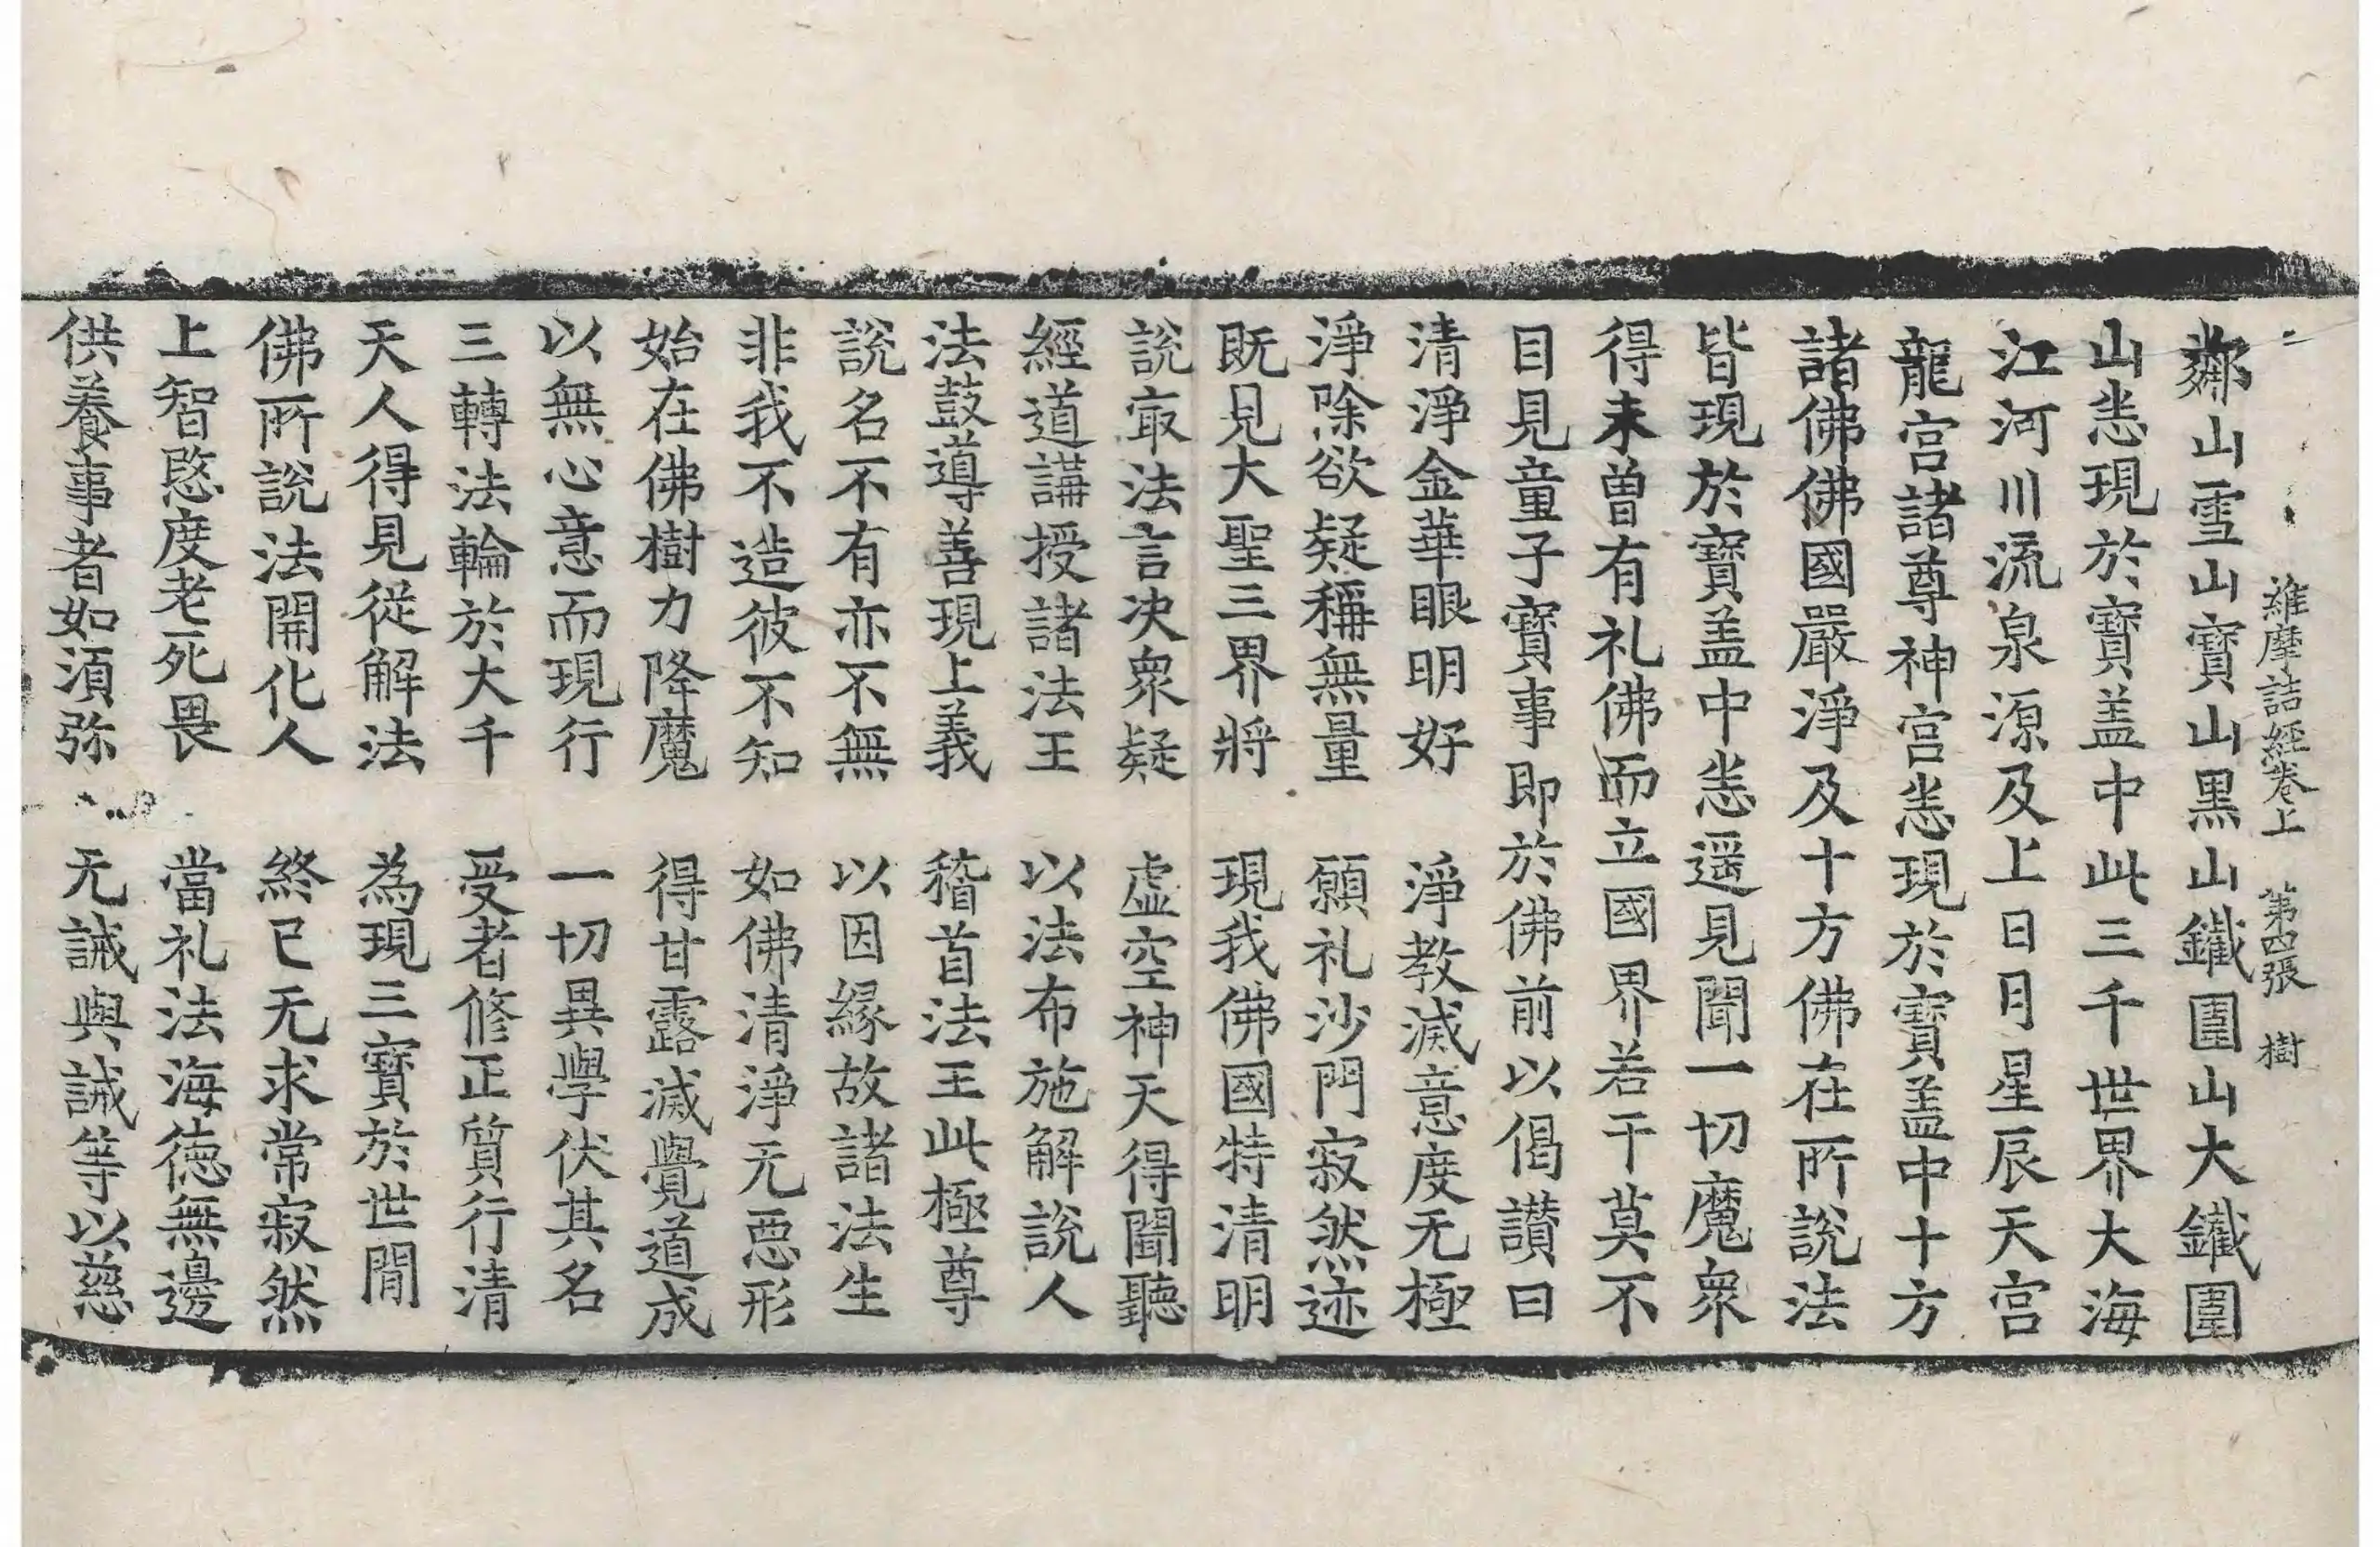 維摩詰經卷上 第四張 樹
鄰山雪山寶山黒山鐵圍山大鐵圍
山悉現於寶盖中此三千世界大海
江河川流泉源及上日月星辰天宫
龍宫諸尊神宫悉現於寶盖中十方
諸佛佛國嚴淨及十方佛在所說法
皆現於寶盖中悉遥見聞一切魔衆
得未曽有礼佛而立國界若干莫不
目見童子寶事即於佛前以偈讃曰
清淨金華眼明好 淨教滅意度无極
淨除欲疑稱無量 願礼沙門寂然迹
既見大聖三界將 現我佛國特清明
說㝡法言决衆疑 虚空神天得聞聽
經道講授諸法王 以法布施解說人
法鼓導善現上義 稽首法王此極尊
說名不有亦不無 以因緣故諸法生
非我不造彼不知 如佛清淨无惡形
始在佛樹力降魔 得甘露滅覺道成
以無心意而現行 一切異學伏其名
三轉法輪於大千 受者修正質行清
天人得見從解法 為現三寶於世間
佛所說法開化人 終已无求常寂然
上智愍度老死畏 當礼法海徳無邊
供養事者如湏弥 无誡與誡等以慈